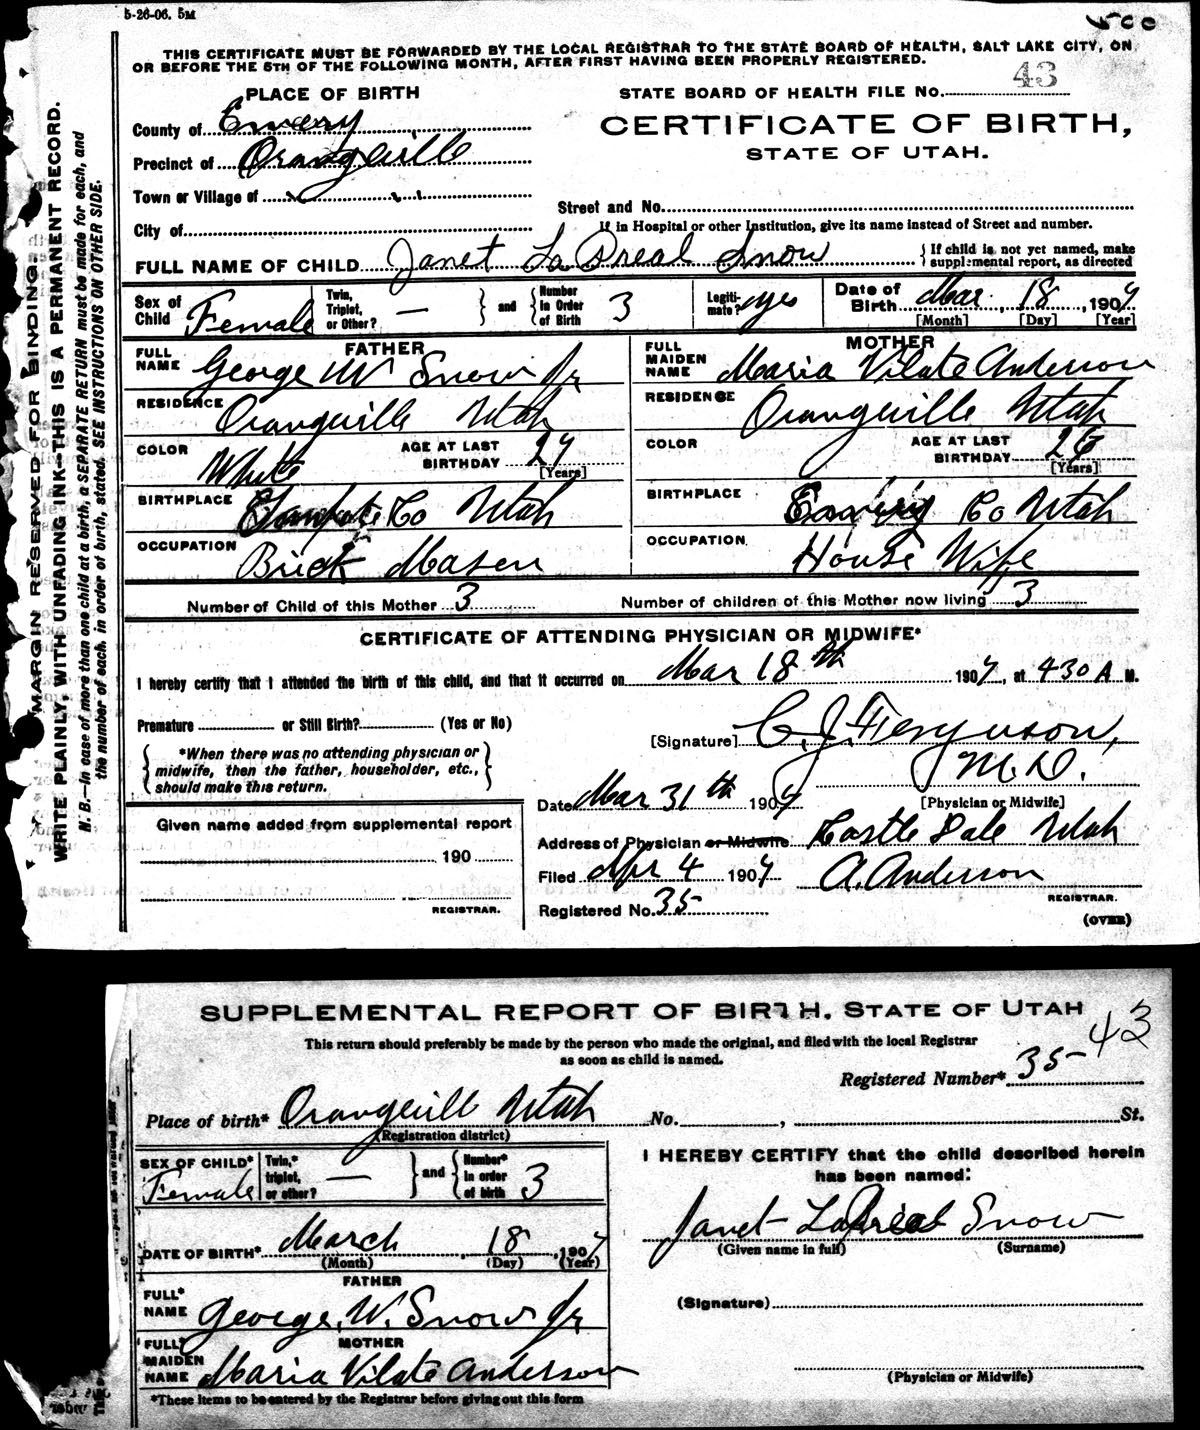 5-26-06. 5M
500
THIS CERTIFICATE MUST BE FORWARDED BY THE LOCAL REGISTRAR TO THE STATE BOARD OF HEALTH, SALT LAKE CITY, ON
OR BEFORE THE 5TH OF THE FOLLOWING MONTH, AFTER FIRST HAVING BEEN PROPERLY REGISTERED.
MARGIN RESERVED FOR BINDING.
WRITE PLAINLY, WITH UNFADING INK—THIS IS A PERMANENT RECORD.
N. B.—In case of more than one child at a birth, a SEPARATE RETURN must be made for each, and
the number of each, in order of birth, stated. SEE INSTRUCTIONS ON OTHER SIDE.
PLACE OF BIRTH
County of Emery
Precinct of Orangeville
Town or Village of " "
City of
STATE BOARD OF HEALTH FILE No. 43
CERTIFICATE OF BIRTH,
STATE OF UTAH.
Street and No.
If in Hospital or other Institution, give its name instead of Street and number.
FULL NAME OF CHILD Janet La Preal Snow { If child is not yet named, make
supplemental report, as directed
Sex of Child Female
Twin, Triplet, or Other? — } and { Number in Order of Birth 3
Legiti- mate? yes
Date of Birth Mar. 18, 1907
[Month] [Day] [Year]
FATHER
FULL NAME George W Snow Jr
RESIDENCE Orangville Utah
COLOR White AGE AT LAST BIRTHDAY 27 [Years]
BIRTHPLACE Sanpete Co Utah
OCCUPATION Brick Mason
MOTHER
FULL MAIDEN NAME Maria Vilate Anderson
RESIDENCE Orangville Utah
COLOR AGE AT LAST BIRTHDAY 26 [Years]
BIRTHPLACE Emery Co Utah
OCCUPATION House Wife
Number of Child of this Mother 3 Number of children of this Mother now living 3
CERTIFICATE OF ATTENDING PHYSICIAN OR MIDWIFE*
I hereby certify that I attended the birth of this child, and that it occurred on Mar 18th 1907, at 430 A M.
Premature or Still Birth? (Yes or No)
{ *When there was no attending physician or
midwife, then the father, householder, etc.,
should make this return. }
[Signature] C. J. Ferguson,
M. D.
[Physician or Midwife]
Date Mar 31th 1907
Address of Physician or Midwife Castle Dale Utah
Filed Apr 4 1907 A. Anderson
REGISTRAR.
Registered No. 35
(OVER)
Given name added from supplemental report
190
REGISTRAR.
SUPPLEMENTAL REPORT OF BIRTH, STATE OF UTAH
43
This return should preferably be made by the person who made the original, and filed with the local Registrar
as soon as child is named.
Registered Number* 35
Place of birth* Orangevill Utah No. , St.
(Registration district)
SEX OF CHILD* Female
Twin,* triplet, or other? — } and { Number* in order of birth 3
DATE OF BIRTH* March 18, 1907
(Month) (Day) (Year)
FATHER
FULL* NAME George, W. Snow Jr
MOTHER
FULL* MAIDEN NAME Maria Vilate Anderson
*These items to be entered by the Registrar before giving out this form
I HEREBY CERTIFY that the child described herein
has been named:
Janet LaPreal Snow
(Given name in full) (Surname)
(Signature)
(Physician or Midwife)